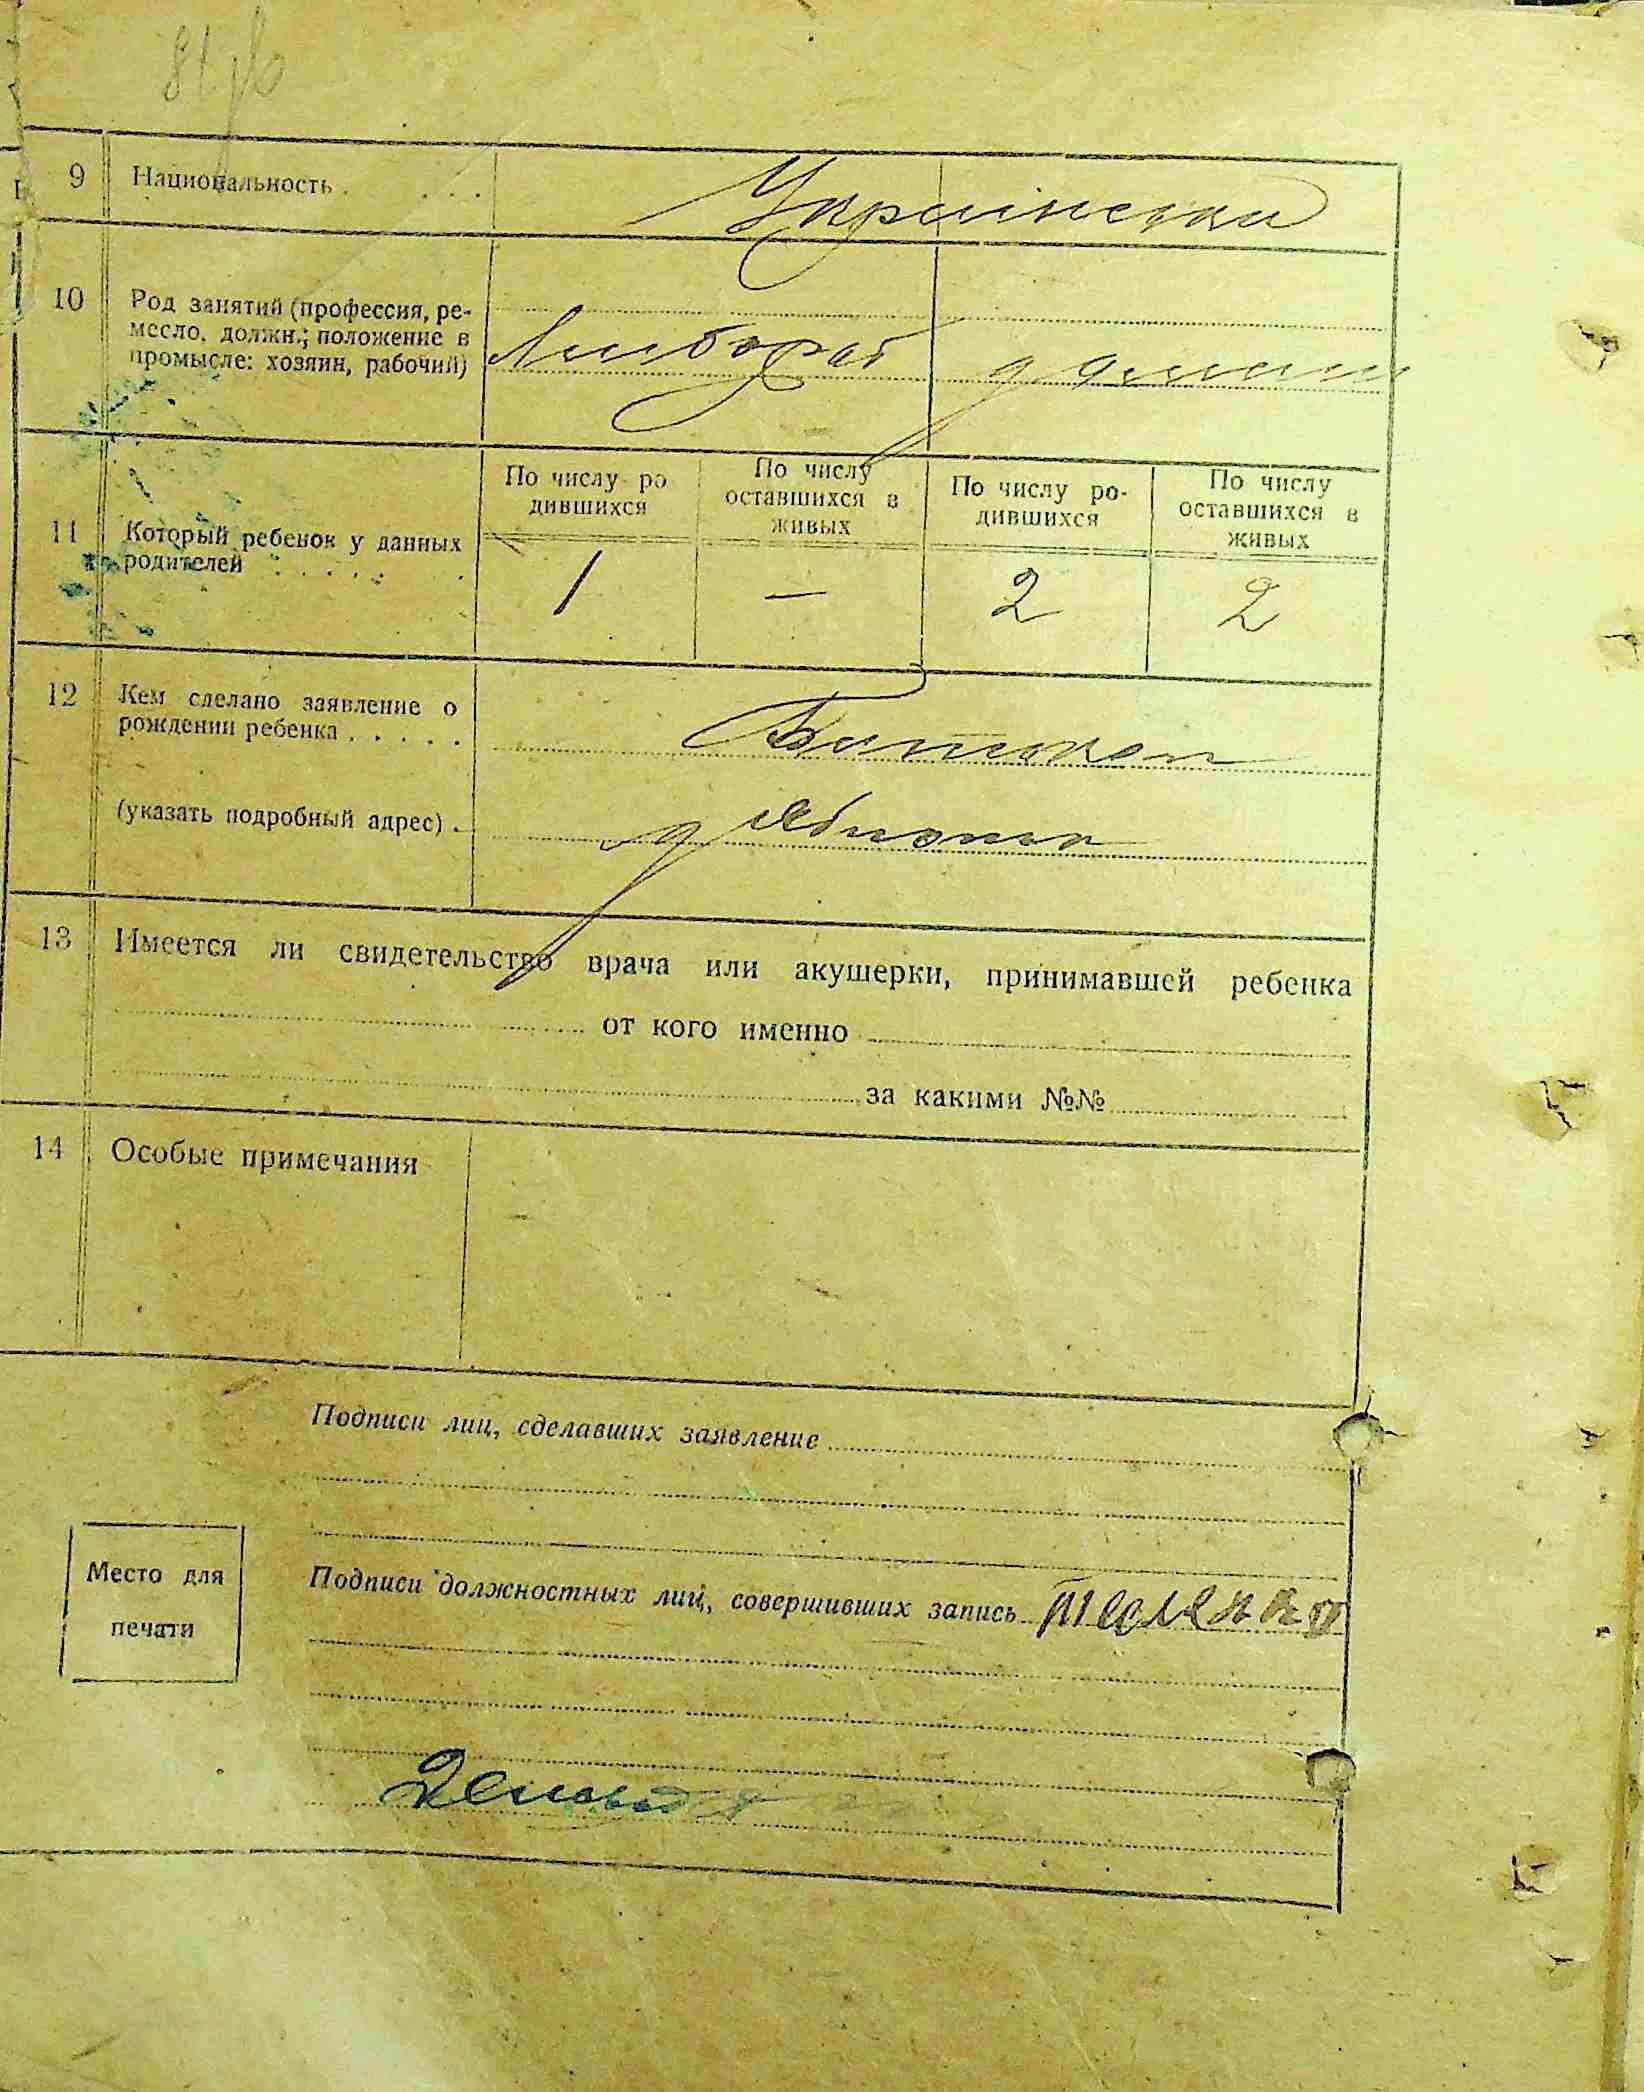 9 Национальность . . . .
Українська
10 Род занятий (профессия, ре-
месло, должн.; положение в
промысле: хозяин, рабочий)
11 Который ребенок у данных
родителей . . . . .
По числу ро
дившихся
По числу
оставшихся в
живых
По числу ро-
дившихся
По числу
оставшихся в
живых
1 — 2 2
12 Кем сделано заявление о
рождении ребенка . . . . .
Батьком
(указать подробный адрес) .
13 Имеется ли свидетельство врача или акушерки, принимавшей ребенка
от кого именно
за какими №№
14 Особые примечания
Подписи лиц, сделавших заявление
Место для
печати
Подписи должностных лиц, совершивших запись